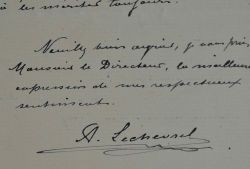 à les mériter toujours.
Veuillez bien agréer, je vous prie,
Monsieur le Directeur, la meilleure
expression de mes respectueux
sentiments.
A. Lechevrel